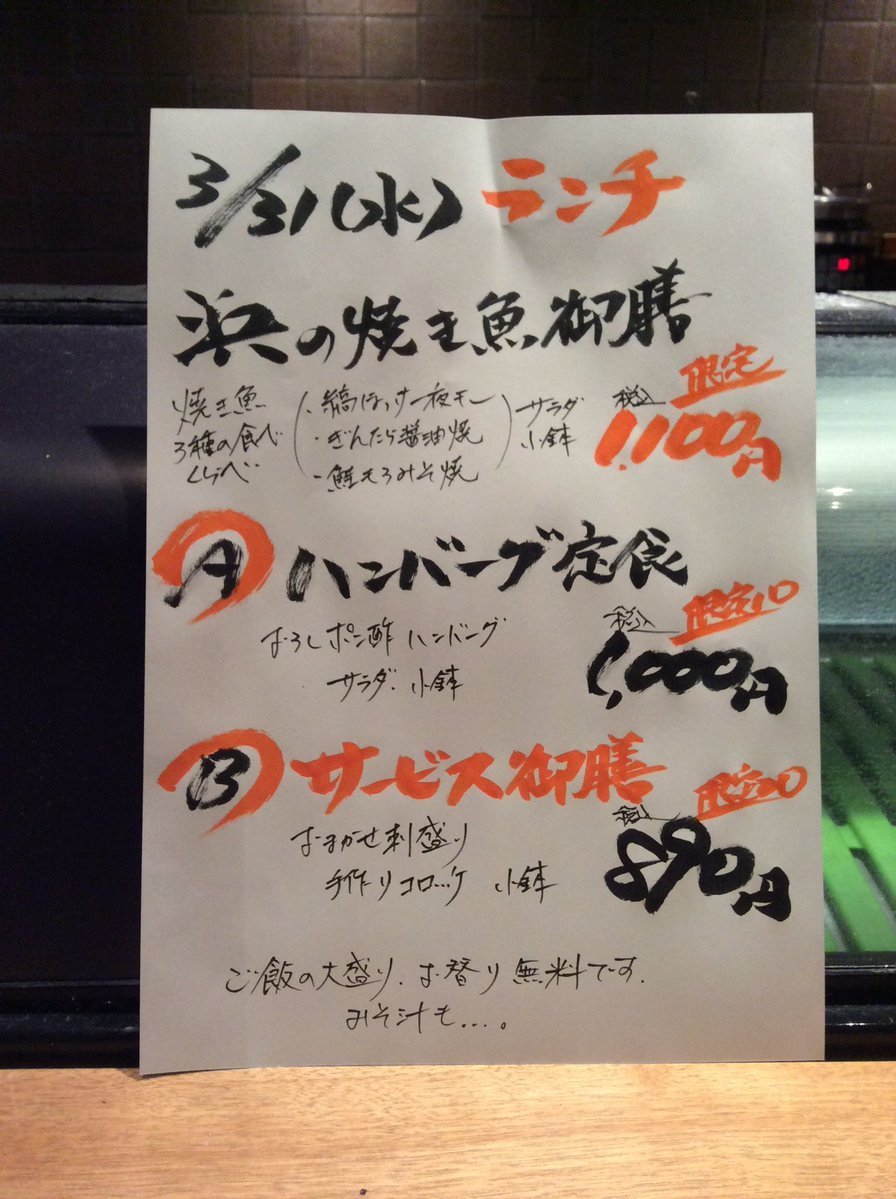 3/31(水) ランチ
浜の焼き魚御膳
焼き魚
3種の食べ
くらべ
・縞ほっけ一夜干し
・ぎんたら醤油焼
・鮭もろみそ焼
サラダ
小鉢
限定
税込
1,100円
A ハンバーグ定食
おろしポン酢 ハンバーグ
サラダ. 小鉢
限定10
税込
1,000円
B サービス御膳
おまかせ刺盛り
手作りコロッケ 小鉢
限定20
税込
890円
ご飯の大盛り.お替り無料です.
みそ汁も....。